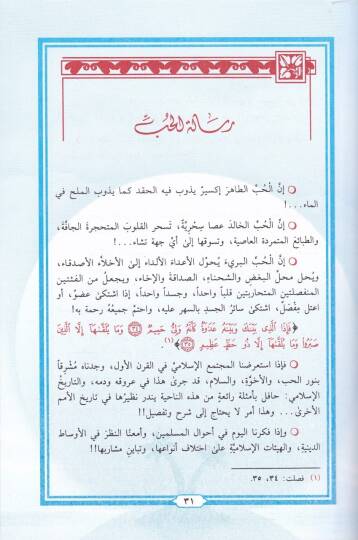 رسالة الحُبّ
○ إنَّ الْحُبَّ الطاهرَ إكسيرٌ يذوب فيه الحقد كما يذوب الملح في
الماء...!
○ إنَّ الْحُبَّ الخالدَ عصا سِحْرِيَّةٌ، تسحر القلوبَ المتحجرةَ الجافَّةَ،
والطبائعَ المتمردة العاصية، وتسوقها إلىٰ أيِّ جهة تشاء...!
○ إنَّ الْحُبَّ البريءَ يُحوِّل الأعداءَ الألداء إلىٰ الأخلاَّء الأصدقاء،
ويُحل محلَّ البغضِ والشحناءِ، الصداقةَ والإخاء، ويجعلُ من الفئتين
المنفصلتين المتحاربتين قلباً واحداً، وجسداً واحداً، إذا اشتكىٰ عضوٌ، أو
اعتل مِفْصَلٌ، اشتكىٰ سائرُ الجسدِ بالسهر عليه، واحتمَّ جميعُهُ رحمة به!
﴿فَإِذَا ٱلَّذِى بَيْنَكَ وَبَيْنَهُۥ عَدَٰوَةٌ كَأَنَّهُۥ وَلِىٌّ حَمِيمٌ ﴿٣٤﴾ وَمَا يُلَقَّىٰهَآ إِلَّا ٱلَّذِينَ
صَبَرُوا۟ وَمَا يُلَقَّىٰهَآ إِلَّا ذُو حَظٍّ عَظِيمٍ ﴿٣٥﴾﴾(١).
○ فإذا استعرضنا المجتمع الإسلاميَّ في القرن الأول، وجدناه مُشْرِقاً
بنور الحب، والأخوَّة، والسلام، قد جرىٰ هذا في عروقه ودمه، والتاريخُ
الإسلامي: حافل بأمثلة رائعةٍ من هذه الناحية يندر نظيرُها في تاريخ الأمم
الأخرىٰ... وهذا أمر لا يحتاج إلىٰ شرح وتفصيل!!
○ وإذا فكرنا اليوم في أحوال المسلمين، وأمعنَّا النظرَ في الأوساط
الدينيةِ، والهيئات الإسلاميَّةِ علىٰ اختلاف أنواعِها، وتباينِ مشاربها!!
(١) فصلت: ٣٤، ٣٥.
٣١